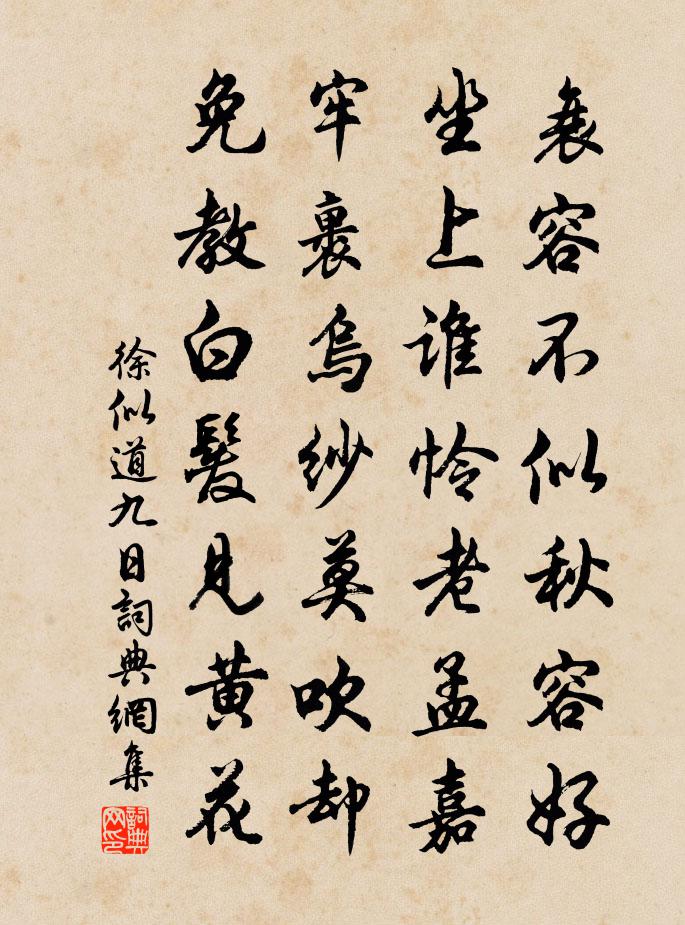 衰容不似秋容好
坐上谁怜老孟嘉
牢裹乌纱莫吹却
免教白髮見黄花
徐似道九日詞典網集
詞典网印